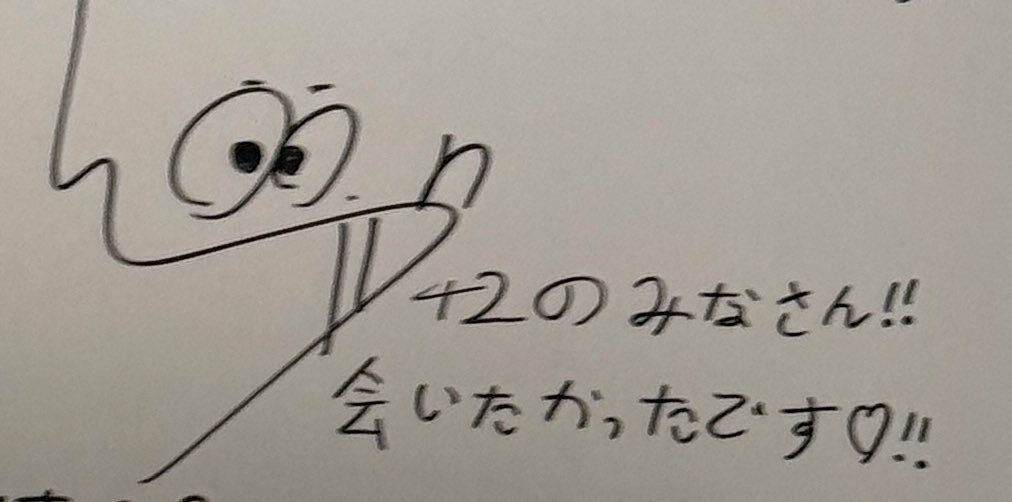 +2のみなさん!!
会いたかったです♡!!